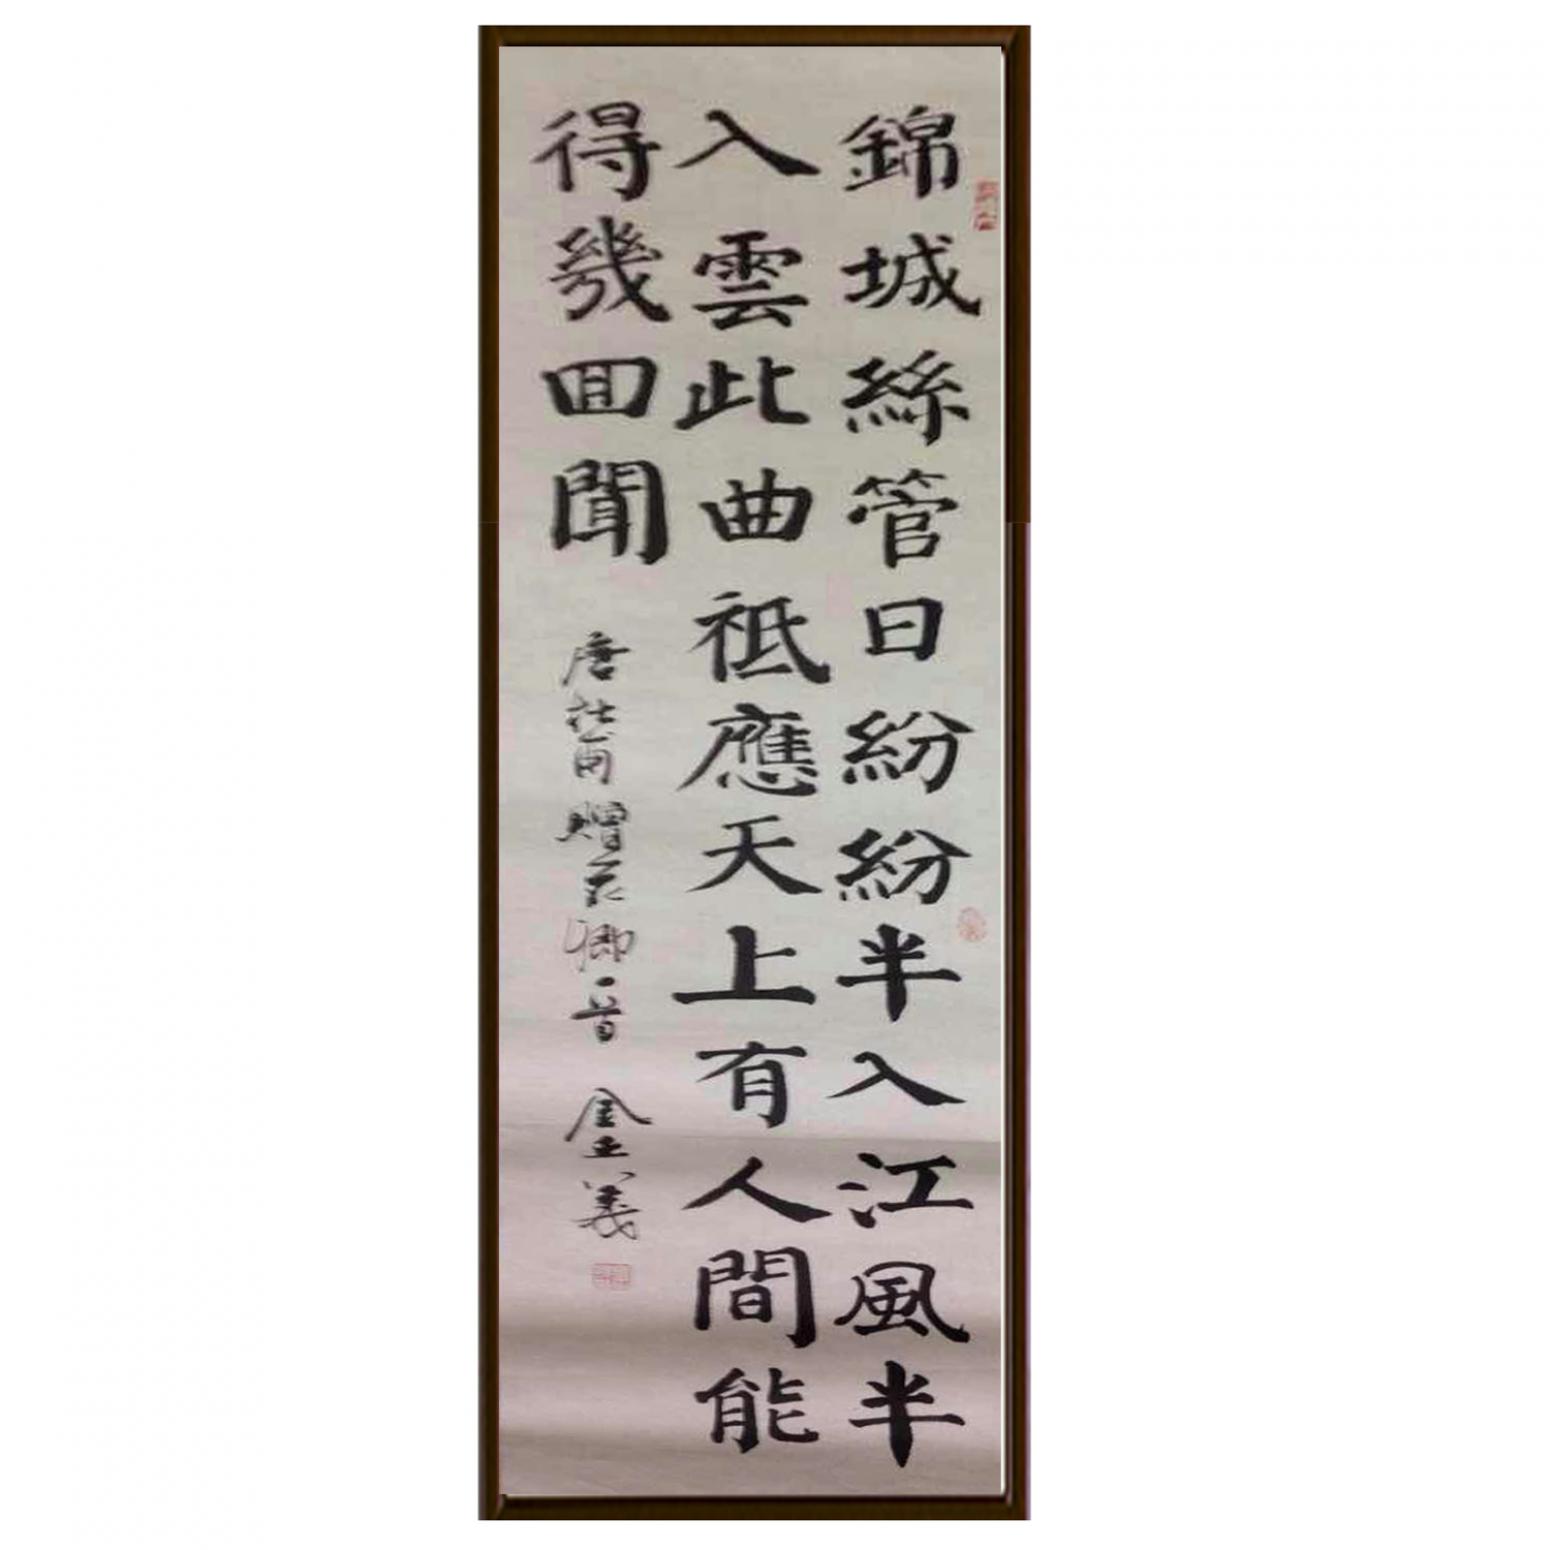 錦城絲管日紛紛半入江風半
入雲此曲祗應天上有人間能
得幾囬聞 唐杜甫贈花卿一首 金 義